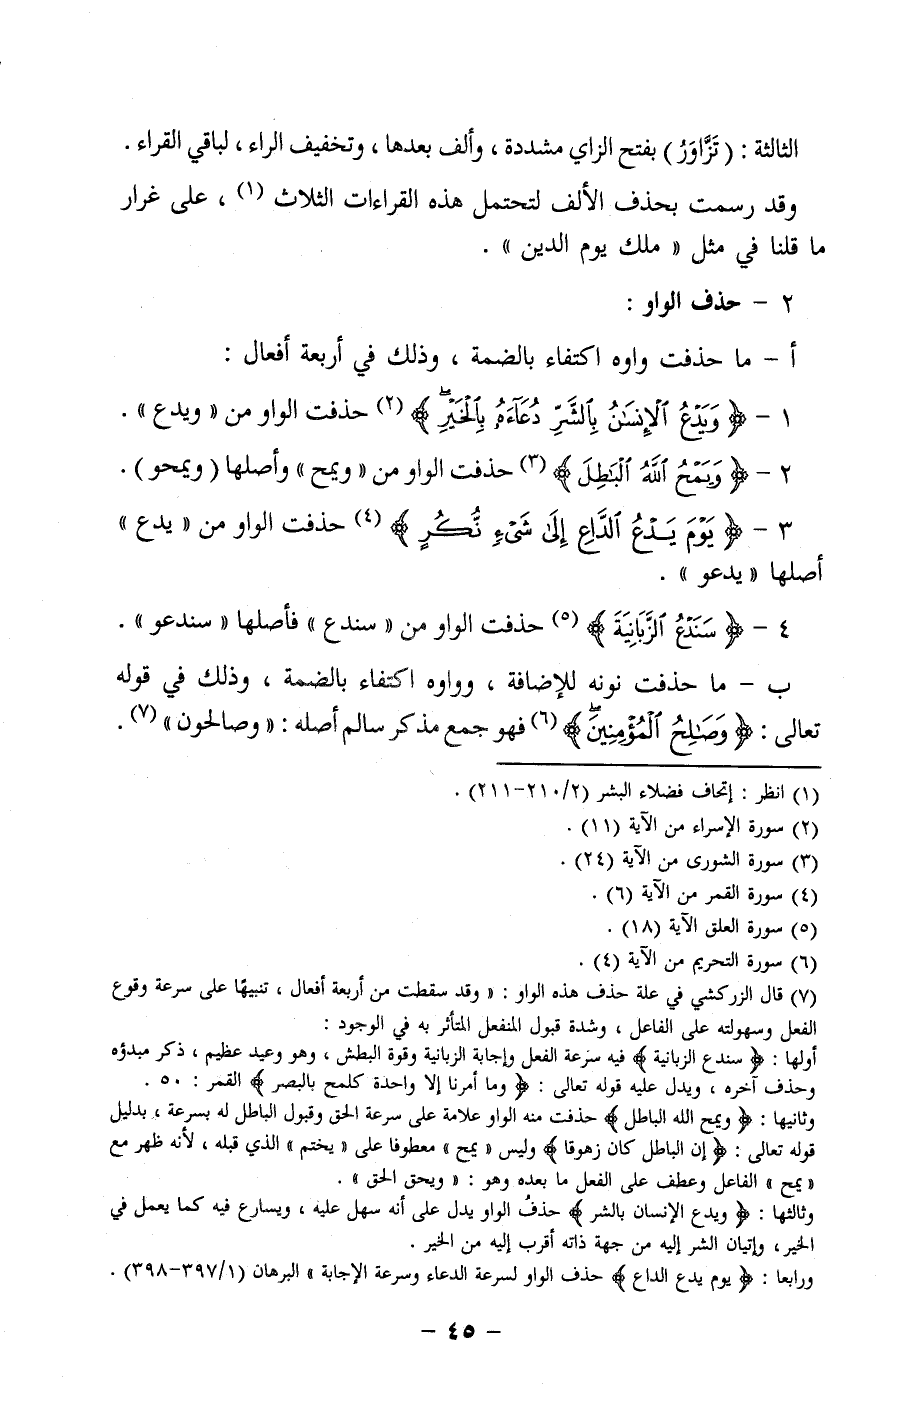 الثالثة : ( تَزَّاوَرُ ) بفتح الزاي مشددة ، وألف بعدها ، وتخفيف الراء ، لباقي القراء .
وقد رسمت بحذف الألف لتحتمل هذه القراءات الثلاث (١) ، على غرار
ما قلنا في مثل « ملك يوم الدين » .
٢ – حذف الواو :
أ – ما حذفت واوه اكتفاء بالضمة ، وذلك في أربعة أفعال :
١ – ﴿ وَيَدْعُ ٱلْإِنسَٰنُ بِٱلشَّرِّ دُعَآءَهُۥ بِٱلْخَيْرِۖ ﴾ (٢) حذفت الواو من « ويدع » .
٢ – ﴿ وَيَمْحُ ٱللَّهُ ٱلْبَٰطِلَ ﴾ (٣) حذفت الواو من « ويمح » وأصلها ( ويمحو ) .
٣ – ﴿ يَوْمَ يَدْعُ ٱلدَّاعِ إِلَىٰ شَىْءٍ نُّكُرٍ ﴾ (٤) حذفت الواو من « يدع »
أصلها « يدعو » .
٤ – ﴿ سَنَدْعُ ٱلزَّبَانِيَةَ ﴾ (٥) حذفت الواو من « سندع » فأصلها « سندعو » .
ب – ما حذفت نونه للإضافة ، وواوه اكتفاء بالضمة ، وذلك في قوله
تعالى : ﴿ وَصَٰلِحُ ٱلْمُؤْمِنِينَۖ ﴾ (٦) فهو جمع مذكر سالم أصله : « وصالحون » (٧) .
(١) انظر : إتحاف فضلاء البشر (٢/٢١٠–٢١١) .
(٢) سورة الإسراء من الآية (١١) .
(٣) سورة الشورى من الآية (٢٤) .
(٤) سورة القمر من الآية (٦) .
(٥) سورة العلق الآية (١٨) .
(٦) سورة التحريم من الآية (٤) .
(٧) قال الزركشي في علة حذف هذه الواو : « وقد سقطت من أربعة أفعال ، تنبيهًا على سرعة وقوع
الفعل وسهولته على الفاعل ، وشدة قبول المنفعل المتأثر به في الوجود :
أولها : ﴿ سندع الزبانية ﴾ فيه سرعة الفعل وإجابة الزبانية وقوة البطش ، وهو وعيد عظيم ، ذكر مبدؤه
وحذف آخره ، ويدل عليه قوله تعالى : ﴿ وما أمرنا إلا واحدة كلمح بالبصر ﴾ القمر : ٥٠ .
وثانيها : ﴿ ويمح الله الباطل ﴾ حذفت منه الواو علامة على سرعة الحق وقبول الباطل له بسرعة ، بدليل
قوله تعالى : ﴿ إن الباطل كان زهوقا ﴾ وليس « يمح » معطوفا على « يختم » الذي قبله ، لأنه ظهر مع
« يمح » الفاعل وعطف على الفعل ما بعده وهو : « ويحق الحق » .
وثالثها : ﴿ ويدع الإنسان بالشر ﴾ حذفُ الواو يدل على أنه سهل عليه ، ويسارع فيه كما يعمل في
الخير ، وإتيان الشر إليه من جهة ذاته أقرب إليه من الخير .
ورابعا : ﴿ يوم يدع الداع ﴾ حذف الواو لسرعة الدعاء وسرعة الإجابة » البرهان (١/٣٩٧–٣٩٨) .
– ٤٥ –